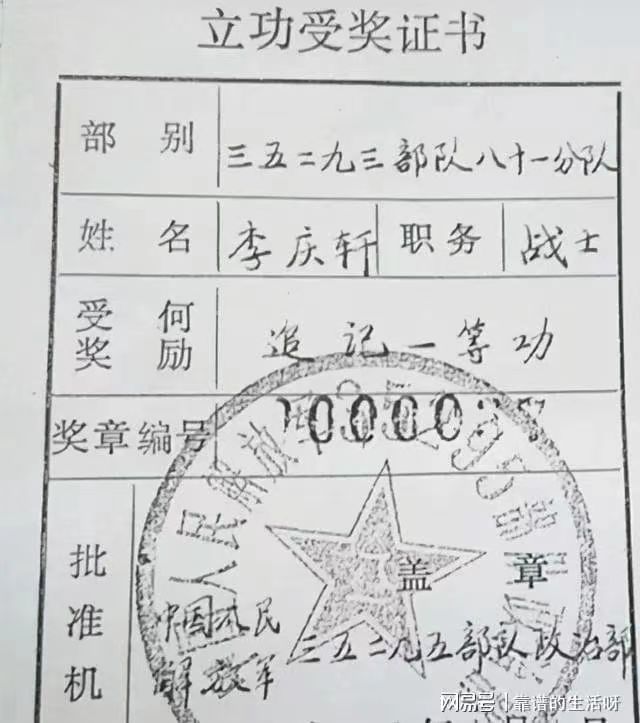 立功受奖证书
部别 三五二九三部队八十一分队
姓名 李庆轩 职务 战士
受何奖励 追记一等功
奖章编号
盖章
批准机
中国人民
解放军 三五二九五部队政治部
网易号 | 靠谱的生活呀